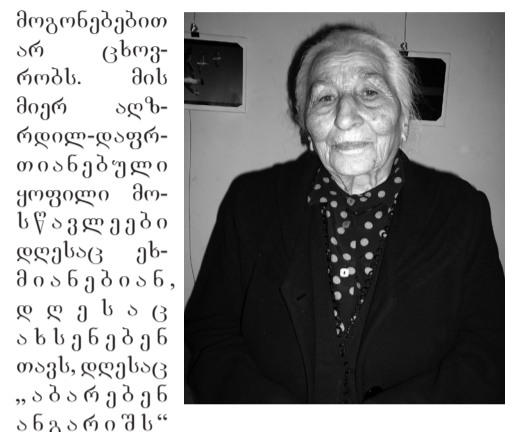 მოგონებებით
არ ცხოვ-
რობს. მის
მიერ აღზ-
რდილ-დაფრ-
თიანებული
ყოფილი მო-
სწავლეები
დღესაც ეხ-
მიანებიან,
დღესაც
ახსენებენ
თავს, დღესაც
„აბარებენ
ანგარიშს“